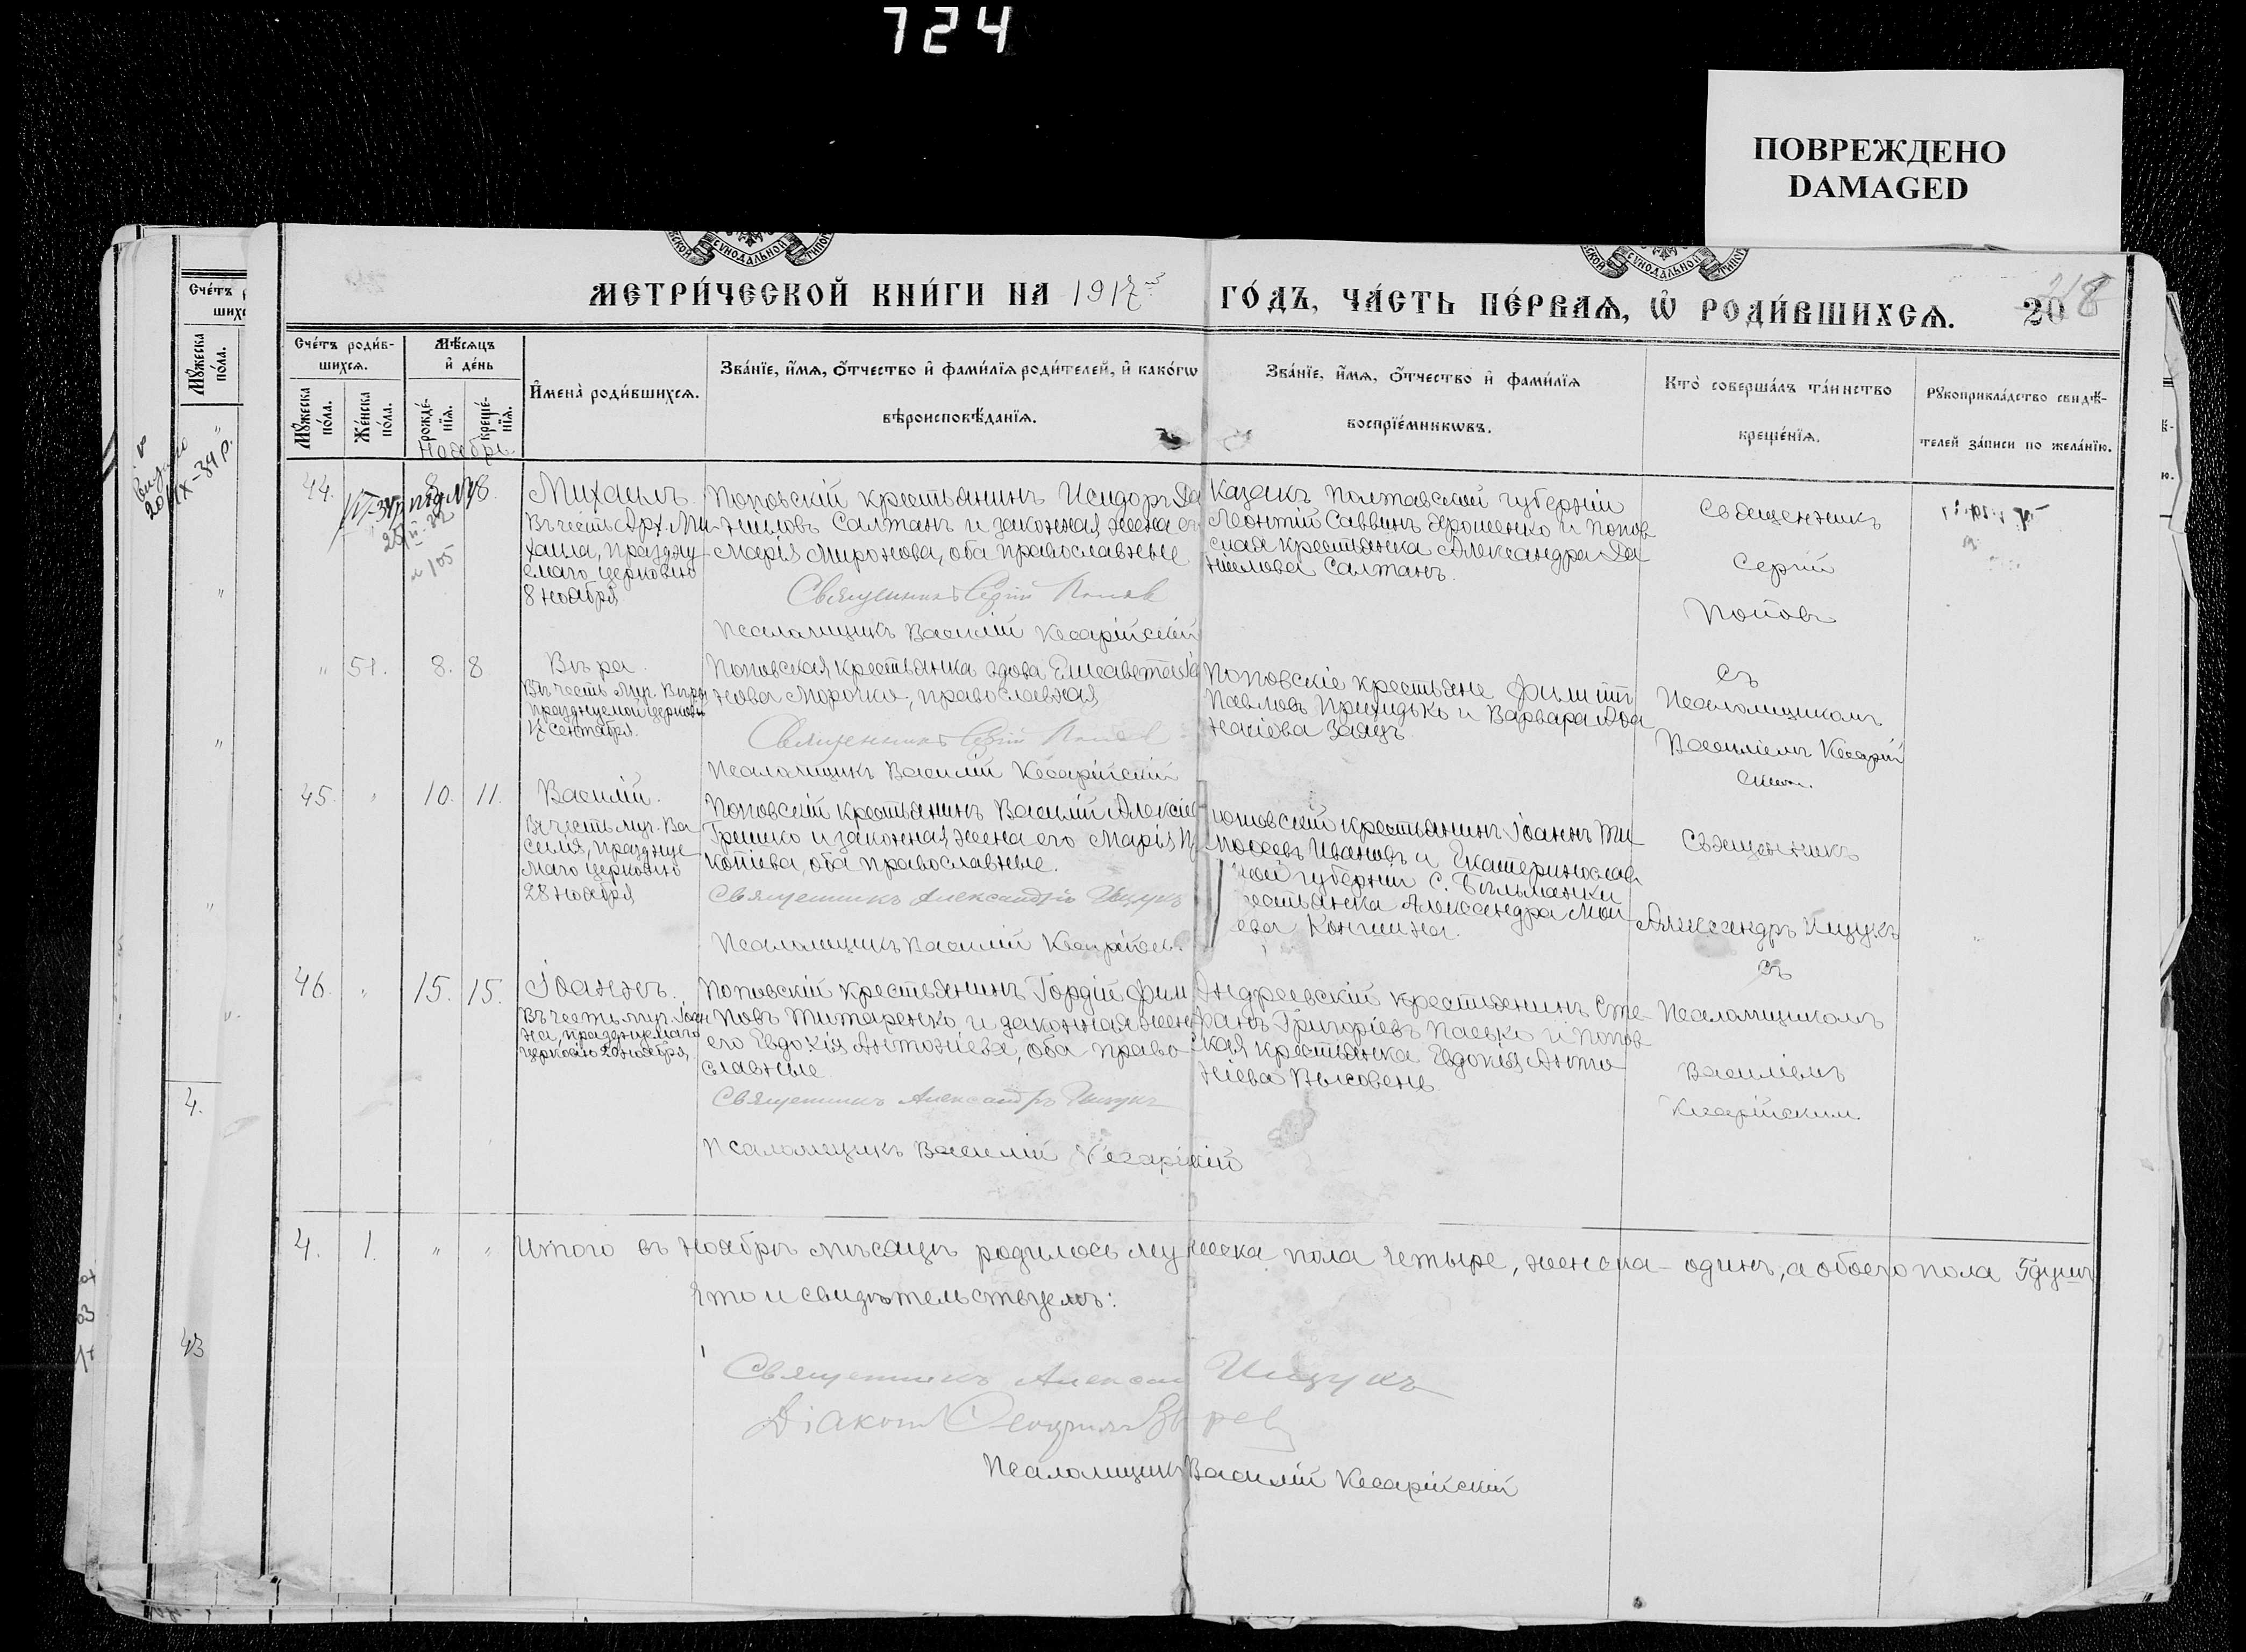 724
ПОВРЕЖДЕНО
DAMAGED
МЕТРИ́ЧЕСКОЙ КНИ́ГИ НА 1917й ГО́ДЪ, ЧА́СТЬ ПЕ́РВАѦ, Ѡ РОДИ́ВШИХСѦ.
218
Сче́тъ роди́в-
шихсѧ.
Мѣ́сѧцъ
и҆ де́нь
Мꙋ́жеска
по́ла.
Же́нска
по́ла.
рожде́-
нїѧ.
креще́-
нїѧ.
И҆мена̀ роди́вшихсѧ.
Зва́нїе, и҆́мѧ, ѻ҆́тчество и҆ фами́лїѧ роди́телей, и҆ како́гѡ
вѣроисповѣ́данїѧ.
Зва́нїе, и҆́мѧ, ѻ҆́тчество и҆ фами́лїѧ
воспрїе́мникѡвъ.
Кто̀ соверша́лъ та́инство
креще́нїѧ.
Рꙋкоприкла́дство свидѣ́-
телей за́писи по жела́нїю.
Ноябрь
44.
8.
8.
Михаилъ.
Въ честь Арх. Ми
хаила, праздну
емаго церковію
8 ноября
Поповскій крестьянинъ Исидоръ Да
ниловъ Салтанъ и законная жена его
Марія Миронова, оба православные
Священникъ Сергій Попов
Псаломщикъ Василій Кесарійскій
Казакъ Полтавской губерніи
Леонтій Саввинъ Ярошенко и Попов
ская крестьянка Александра Да
нилова Салтанъ.
Священникъ
Сергій
Поповъ
"
51.
8.
8
Вѣра.
Въ честь муч. Вѣры
празднуемой церковію
17 сентября.
Поповская крестьянка вдова Елисавета
нова Морочко, православная
Священникъ Сергій Попов
Псаломщикъ Василій Кесарійскій
Поповскіе крестьяне Филиппъ
Павловъ Приходько и Варвара Аѳа
насіева Заяцъ.
съ
Псаломщикомъ
Василіемъ Кесарій
скимъ.
45.
"
10.
11.
Василій.
Въ честь муч. Ва
силія, праздну
емаго церковію
28 ноября
Поповскій крестьянинъ Василій Алексіев
Гришко и законная жена его Марія Пр
копіева, оба православные.
Священникъ Александръ Ищукъ
Псаломщикъ Василій Кесарійск.
Поповскій крестьянинъ Іоаннъ Ти
моѳеевъ Ивановъ и Екатеринослав
ской губерніи с. Бѣльманки
крестьянка Александра Мои
сеева Коншина.
Священникъ
Александръ Ищукъ
съ
46.
"
15.
15.
Іоаннъ.
Въ честь муч. Іоан
на, празднуемаго
церковію 20 ноября
Поповскій крестьянинъ Гордій Фили
повъ Титаренко и законная жена
его Евдокія Антоніева, оба право
славные
Священникъ Александръ Ищукъ
Псаломщикъ Василій Кесарійскій
Андреевскій крестьянинъ Сте-
фанъ Григоріевъ Пасько и Попов
ская крестьянка Евдокія Анто
ніева
Псаломщикомъ
Василіемъ
Кесарійскимъ
4.
1.
"
"
Итого въ ноябрѣ мѣсяцѣ родилось мужеска пола четыре, женска - одинъ, а обоего пола 5 душъ
что и свидѣтельствуемъ:
Священникъ Алексан Ищукъ
Діаконъ
Псаломщикъ Василій Кесарійскій
Сче́тъ
Мꙋ́жеска
по́ла.
4.
43